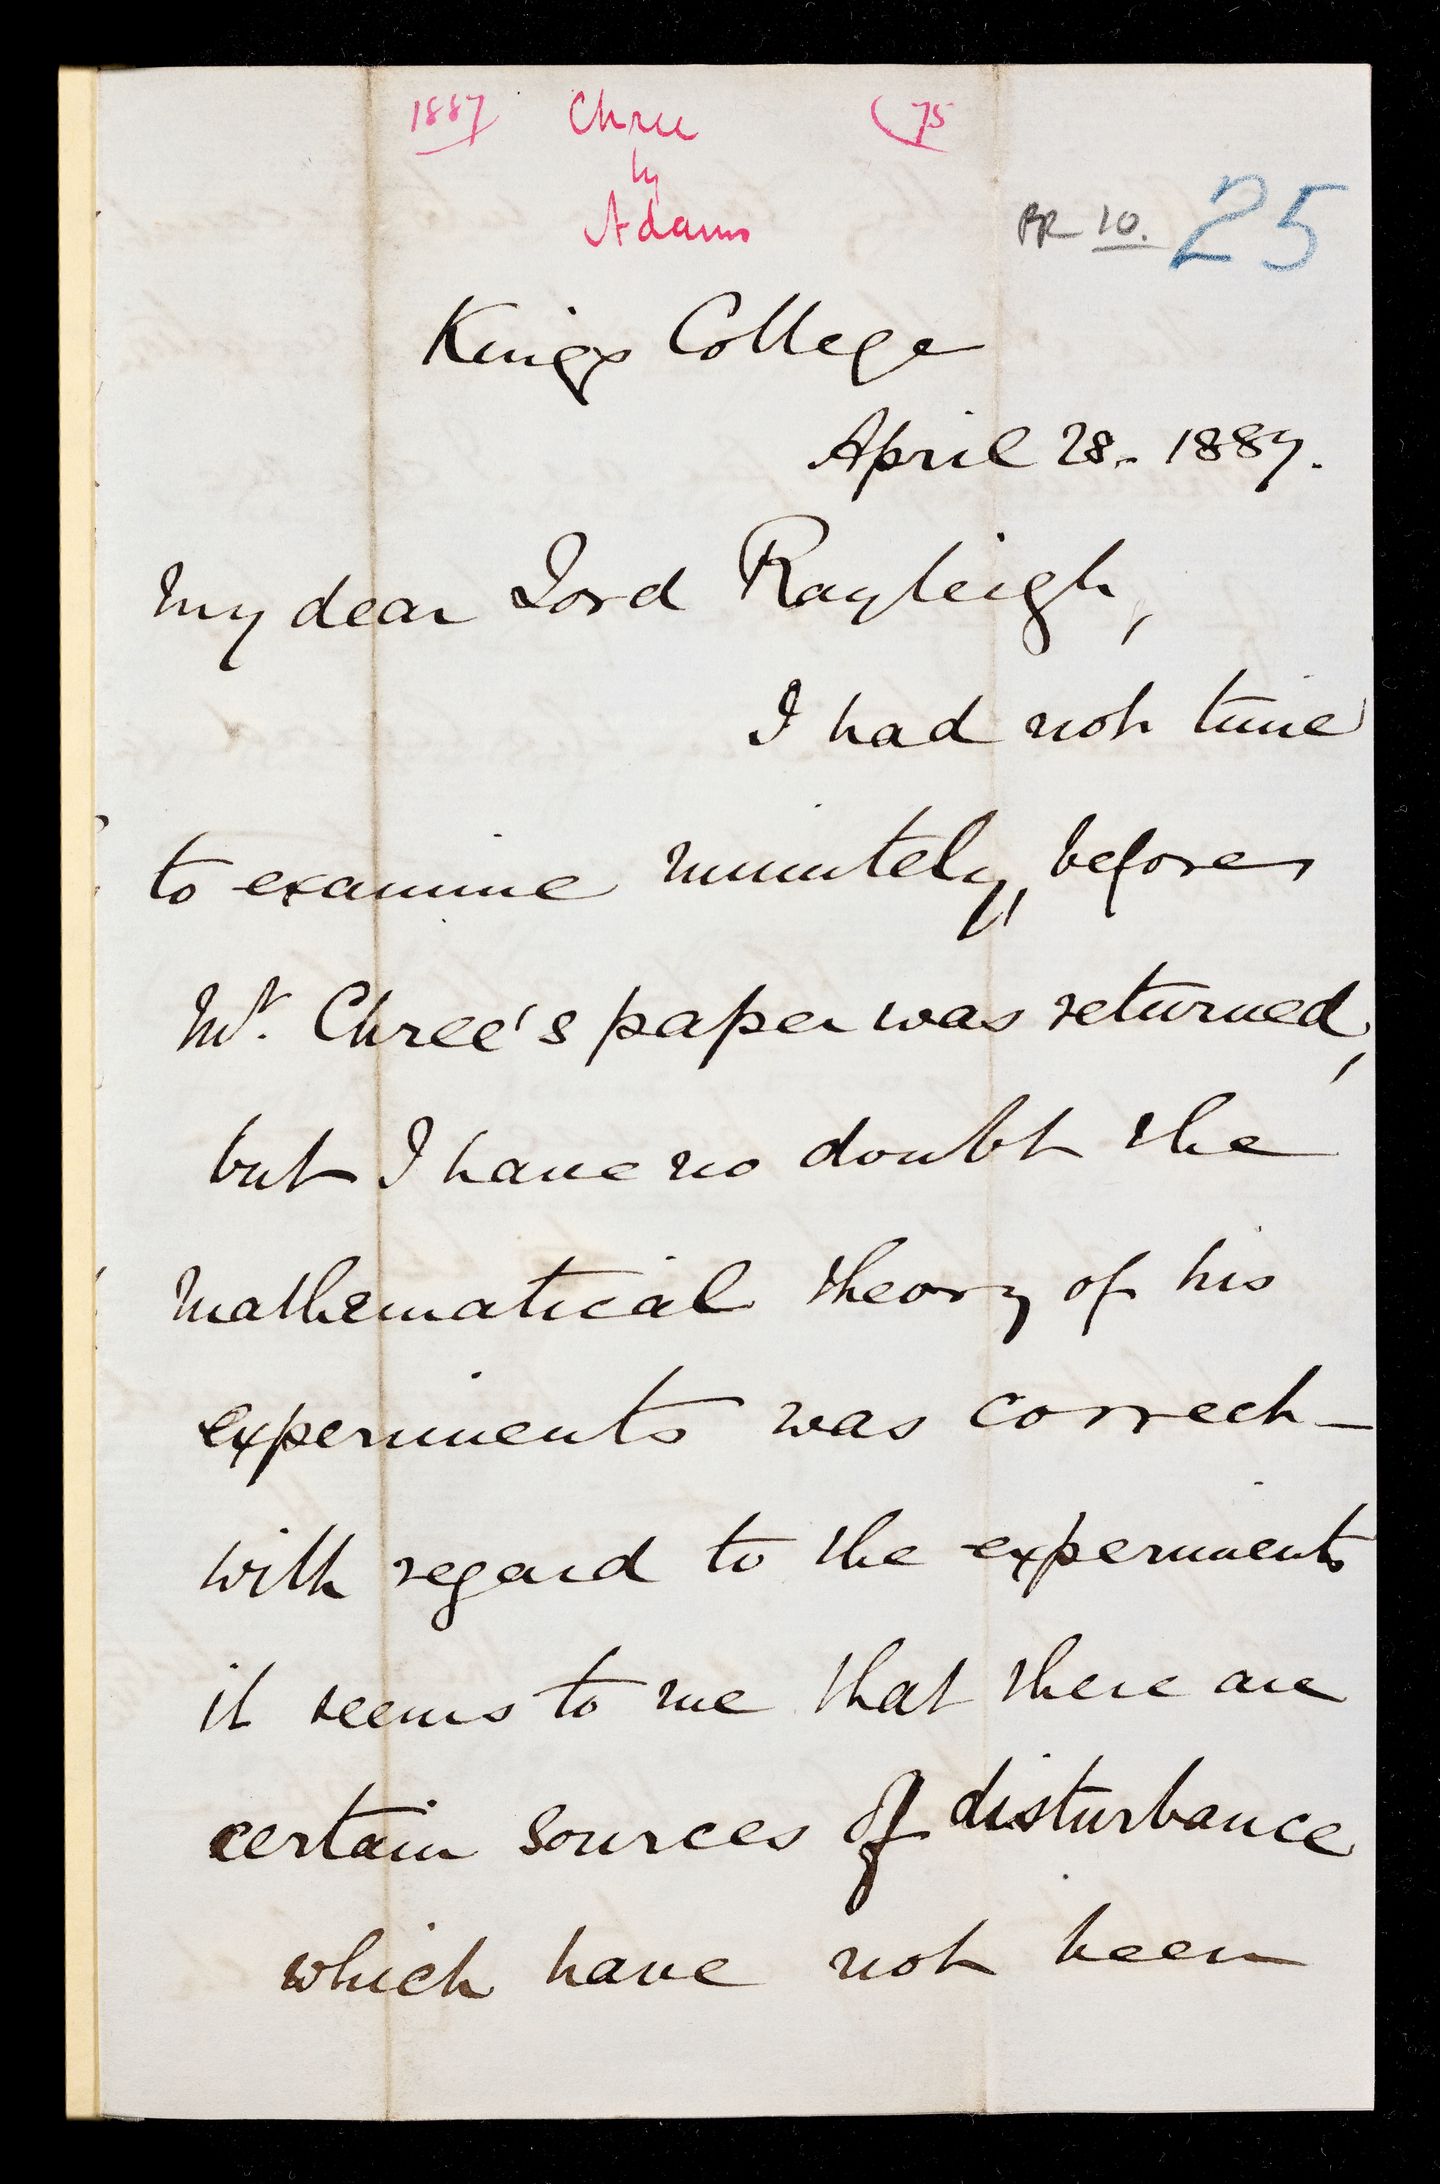 1887 Chree 75
by
Adams
RR 10. 25
Kings College
April 28. 1887.
My dear Lord Rayleigh,
I had not time
to examine minutely, before
Mr. Chree's paper was returned,
but I have no doubt the
mathematical theory of his
experiments was correct –
with regard to the experiments
it seems to me that there are
certain sources of disturbance
which have not been